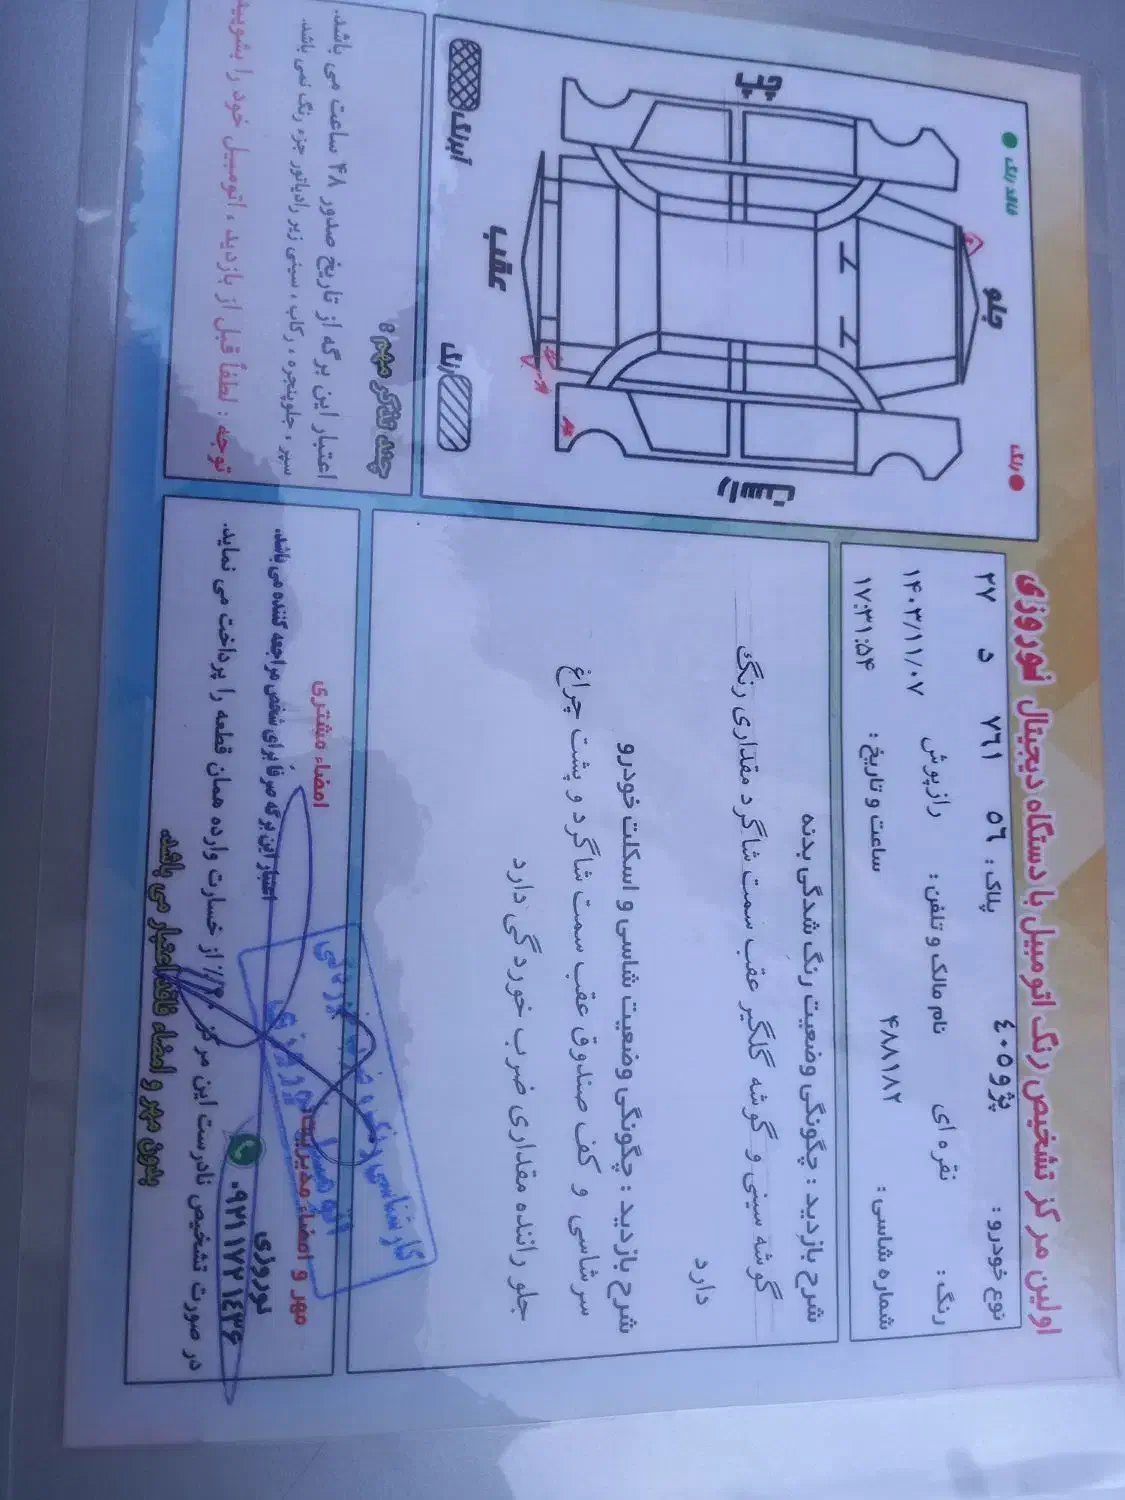 اولین مرکز تشخیص رنگ اتومبیل با دستگاه دیجیتال نوروزی
نوع خودرو : پژو ۴۰۵ پلاک : ۵۶ ۷۶۱ د ۲۷
رنگ : نقره ای نام مالک و تلفن : رازپوش ۱۴۰۳/۱۱/۰۷
شماره شاسی : ۴۸۸۱۸۲ ساعت و تاریخ : ۱۷:۳۱:۵۴
شرح بازدید : چگونگی وضعیت رنگ شدگی بدنه
گوشه سینی و گوشه گلگیر عقب سمت شاگرد مقداری رنگ
دارد
شرح بازدید : چگونگی وضعیت شاسی و اسکلت خودرو
سرشاسی و کف صندوق عقب سمت شاگرد و پشت چراغ
جلو راننده مقداری ضرب خوردگی دارد
رنگ
فاقد رنگ
جلو
چپ
راست
عقب
رنگ
آبرنگ
چند تذکر مهم :
اعتبار این برگه از تاریخ صدور ۴۸ ساعت می باشد.
سپر ، جلوپنجره ، رکاب ، سینی زیر رادیاتور جزء رنگ نمی باشد.
توجه : لطفاً قبل از بازدید ، اتومبیل خود را بشویید
امضاء مشتری
مهر و امضاء مدیریت
اعتبار این برگه صرفاً برای شخص مراجعه کننده می باشد.
نوروزی
۰۹۲۱۱۷۲۱۴۳۶
در صورت تشخیص نادرست این مرکز ۲۰٪ از خسارت وارده همان قطعه را پرداخت می نماید.
بدون مهر و امضاء فاقد اعتبار می باشد.
کارشناسی رنگ و
اتومبیل نوروزی